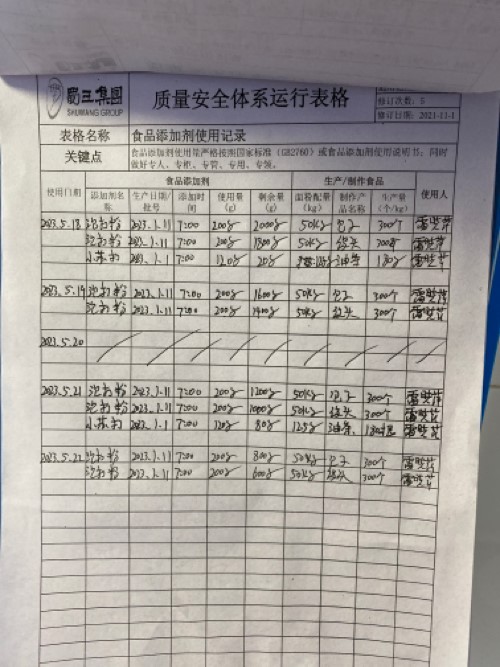 蜀王集团
SHUWANG GROUP
质量安全体系运行表格
修订次数: 5
修订日期: 2021-11-1
表格名称 食品添加剂使用记录
关键点 食品添加剂使用量严格按照国家标准（GB2760）或食品添加剂使用说明书; 同时
做好专人、专柜、专管、专用、专领。
食品添加剂 生产/制作食品
使用日期 添加剂名称 生产日期/批号 添加时间 使用量(g) 剩余量(g) 面粉配量(kg) 制作产品名称 生产量(个/kg) 使用人
2023.5.18 泡打粉 2023.1.11 7:00 200g 2000g 50kg 包子 300个
泡打粉 2023.1.11 7:00 200g 1800g 50kg 馒头 300个
小苏打 2023.1.11 7:00 120g 20g 油条
2023.5.19 泡打粉 2023.1.11 7:00 200g 1600g 50kg 包子 300个
泡打粉 2023.1.11 7:00 200g 1400g 50kg 馒头 300个
2023.5.20
2023.5.21 泡打粉 2023.1.11 7:00 200g 1200g 50kg 包子 300个
泡打粉 2023.1.11 7:00 200g 1000g 50kg 馒头 300个
小苏打 2023.1.1 7:00 120g 80g 油条
2023.5.22 泡打粉 2023.1.11 7:00 200g 800g 50kg 包子 300个
泡打粉 2023.1.11 7:00 200g 600g 50kg 馒头 300个